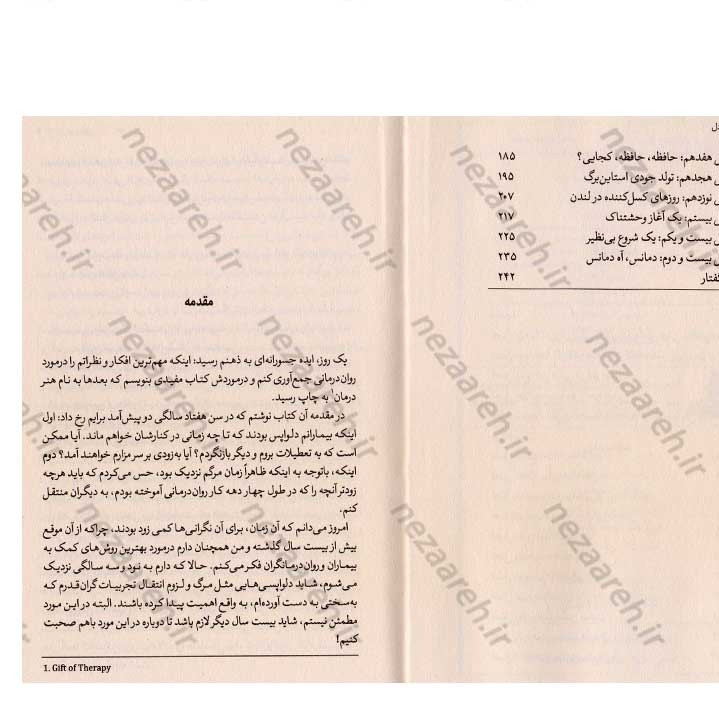 ل
هفدهم: حافظه، حافظه، کجایی؟ ۱۸۵
هجدهم: تولد جودی استاین‌برگ ۱۹۵
نوزدهم: روزهای کسل‌کننده در لندن ۲۰۷
بیستم: یک آغاز وحشتناک ۲۱۷
بیست و یکم: یک شروع بی‌نظیر ۲۲۵
بیست و دوم: دمانس، آه دمانس ۲۳۵
گفتار ۲۴۲
مقدمه
یک روز، ایده جسورانه‌ای به ذهنم رسید: اینکه مهم‌ترین افکار و نظراتم را درمورد
روان‌درمانی جمع‌آوری کنم و درموردش کتاب مفیدی بنویسم که بعدها به نام هنر
درمان۱ به چاپ رسید.
در مقدمه آن کتاب نوشتم که در سن هفتاد سالگی دو پیش‌آمد برایم رخ داد: اول
اینکه بیمارانم دلواپس بودند که تا چه زمانی در کنارشان خواهم ماند. آیا ممکن
است که به تعطیلات بروم و دیگر بازنگردم؟ آیا به‌زودی بر سر مزارم خواهند آمد؟ دوم
اینکه، باتوجه به اینکه ظاهراً زمان مرگم نزدیک بود، حس می‌کردم که باید هرچه
زودتر آنچه را که در طول چهار دهه کار روان‌درمانی آموخته بودم، به دیگران منتقل
کنم.
امروز می‌دانم که آن زمان، برای آن نگرانی‌ها کمی زود بودند، چراکه از آن موقع
بیش از بیست سال گذشته و من همچنان دارم درمورد بهترین روش‌های کمک به
بیماران و روان‌درمانگران فکر می‌کنم. حالا که دارم به نود و سه سالگی نزدیک
می‌شوم، شاید دلواپسی‌هایی مثل مرگ و لزوم انتقال تجربیات گران‌قدرم که
به‌سختی به دست آورده‌ام، به واقع اهمیت پیدا کرده باشند. البته در این مورد
مطمئن نیستم، شاید بیست سال دیگر لازم باشد تا دوباره در این مورد باهم صحبت
کنیم!
1. Gift of Therapy
nezaareh.ir
nezaareh.ir
nezaareh.ir
nezaareh.ir
nezaareh.ir
nezaareh.ir
nezaareh.ir
nezaareh.ir
nezaareh.ir
nezaareh.ir
nezaareh.ir
nezaareh.ir